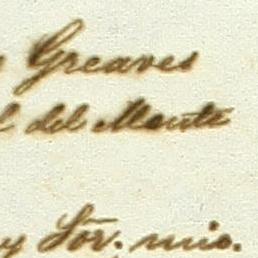 Greaves
l del Monte
y Sōr. mio.